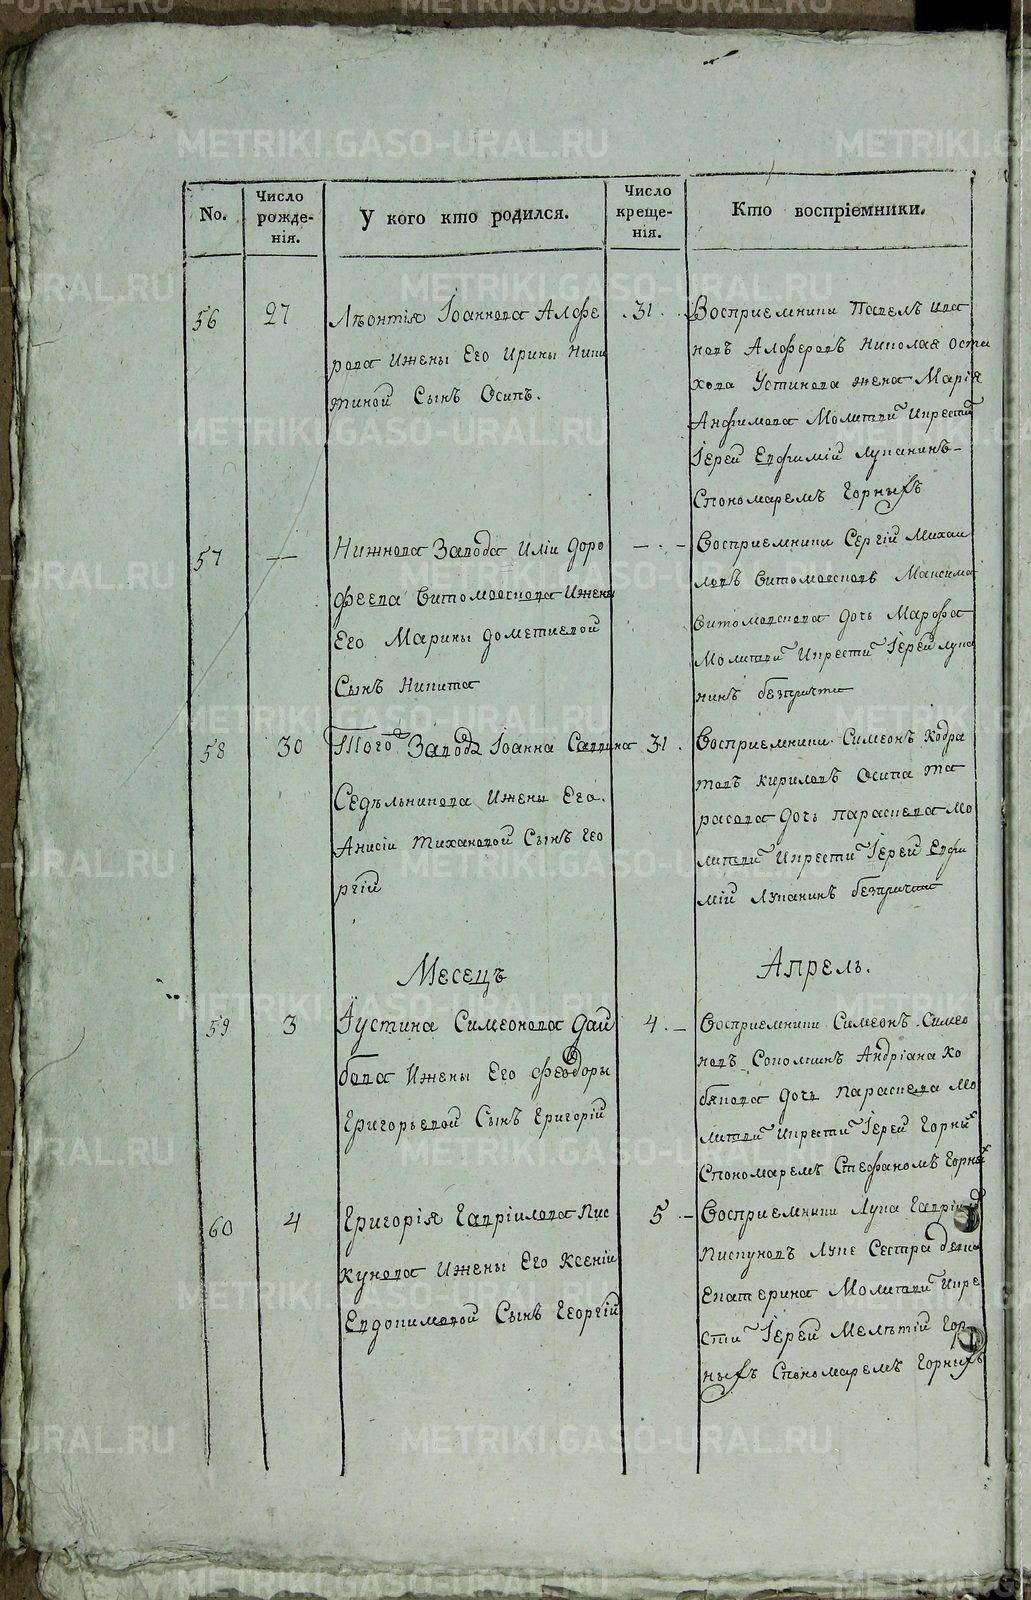 No.
Число рожде-нія.
У кого кто родился.
Число креще-нія.
Кто воспріемники.
56
27
Леонтія Іоаннова Алфе
рова Ижены Его Ирины Ники
тиной Сынъ Осипъ.
31
Восприемники Павелъ Ива
новъ Алферовъ Николая Оста
хова Устинова жена Марія
Анфимова Молитви Икрести
Іерей Евфимій Лупанинъ
Спономаремъ Горныхъ
57
—
Нижнова Завода Иліи Доро
феева Витомовскова Ижены
Его Марины Дометиевой
Сынъ Никита
—
Восприемники Сергій Михаи
ловъ Витомовсковъ Максима
Витомовскова дочь Марфа
Молитви Икрести Іерей Лупа
нинъ безпричта
58
30
Того Завода Іоанна Саввина
Седельникова Ижены Его
Анисіи Тихановой Сынъ Гео
ргій
31
Восприемники Симеонъ Кодра
товъ Кириловъ Осипа Та
расова дочь Параскева Мо
литви Икрести Іерей Евфи
мій Лупанинъ безпричта
Месецъ
Апрель.
59
3
Іустина Симеонова Дай
бова Ижены Его Феодоры
Григорьевой Сынъ Григорій
4
Восприемники Симеонъ Симео
новъ Андріана Ко
бякова дочь Параскева Мо
литви Икрести Іерей Горных
Спономаремъ Стефаномъ Горных
60
4
Григорія Гавріилова Пис
кунова Ижены Его Ксеніи
Евдокимовой Сынъ Георгій
5
Восприемники Лука Гаврі
Пискуновъ Луке Сестра девка
Екатерина Молитви Икре
сти Іерей Мелетій Гор
ныхъ Спономаремъ Горныхъ
METRIKI.GASO-URAL.RU